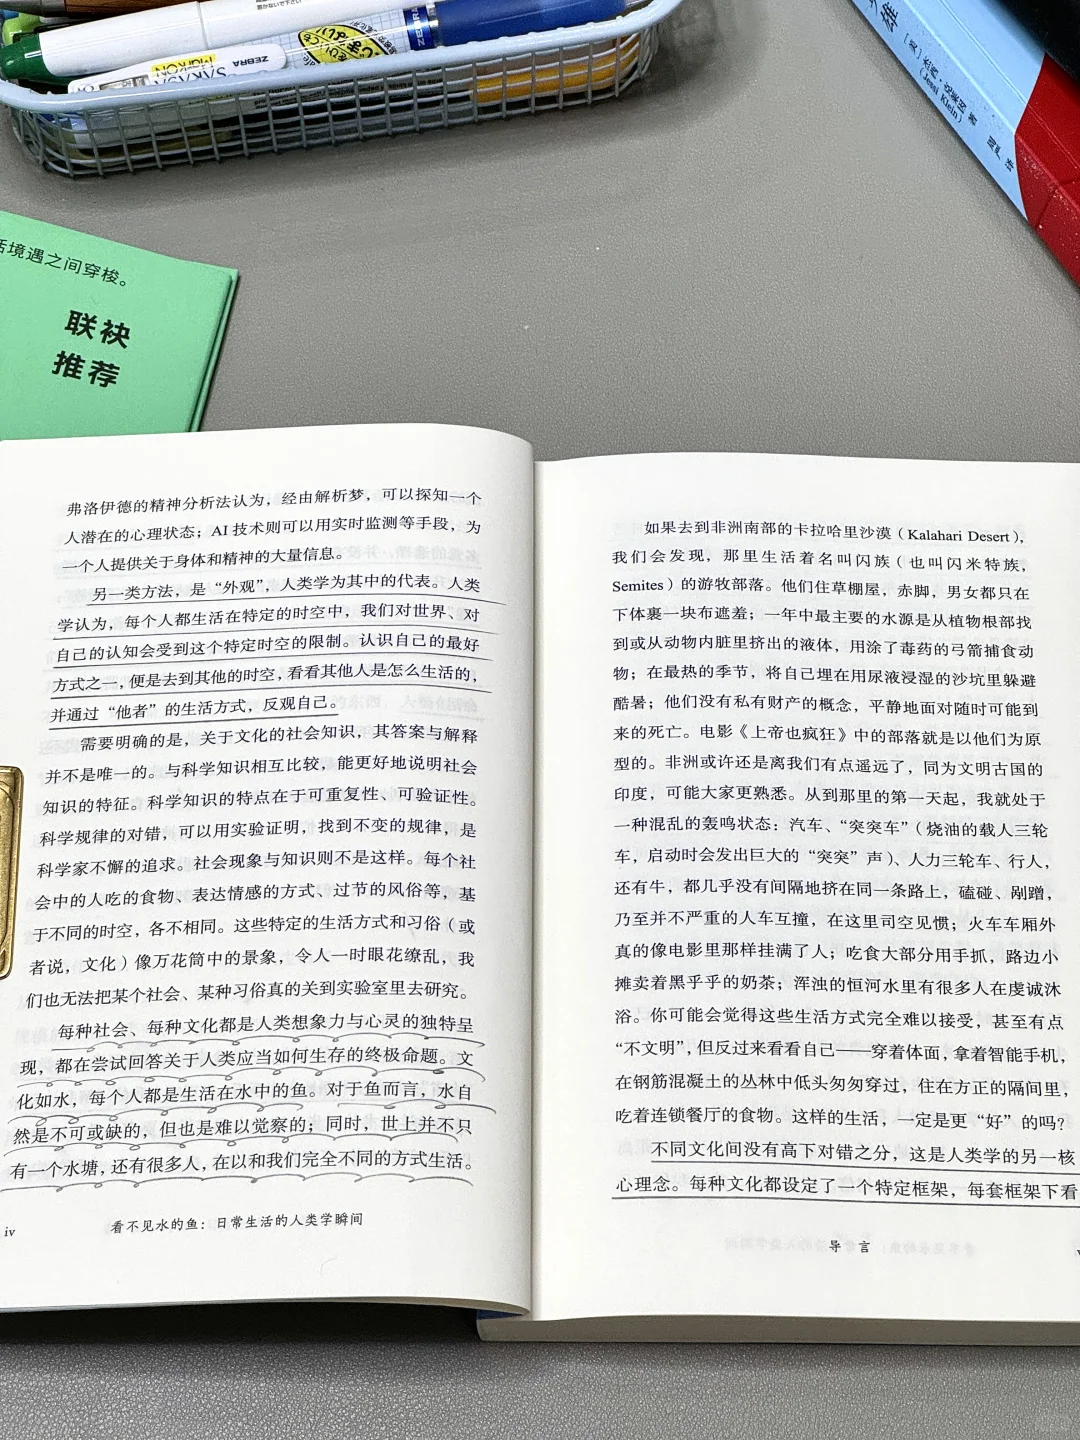 ZEBRA
ZEBRA
活境遇之间穿梭。
联袂
推荐
[美] 杰西·克莱因 著
(Jessi Klein)
弗洛伊德的精神分析法认为，经由解析梦，可以探知一个
人潜在的心理状态；AI 技术则可以用实时监测等手段，为
一个人提供关于身体和精神的大量信息。
另一类方法，是“外观”，人类学为其中的代表。人类
学认为，每个人都生活在特定的时空中，我们对世界、对
自己的认知会受到这个特定时空的限制。认识自己的最好
方式之一，便是去到其他的时空，看看其他人是怎么生活的，
并通过“他者”的生活方式，反观自己。
需要明确的是，关于文化的社会知识，其答案与解释
并不是唯一的。与科学知识相互比较，能更好地说明社会
知识的特征。科学知识的特点在于可重复性、可验证性。
科学规律的对错，可以用实验证明，找到不变的规律，是
科学家不懈的追求。社会现象与知识则不是这样。每个社
会中的人吃的食物、表达情感的方式、过节的风俗等，基
于不同的时空，各不相同。这些特定的生活方式和习俗（或
者说，文化）像万花筒中的景象，令人一时眼花缭乱，我
们也无法把某个社会、某种习俗真的关到实验室里去研究。
每种社会、每种文化都是人类想象力与心灵的独特呈
现，都在尝试回答关于人类应当如何生存的终极命题。文
化如水，每个人都是生活在水中的鱼。对于鱼而言，水自
然是不可或缺的，但也是难以觉察的；同时，世上并不只
有一个水塘，还有很多人，在以和我们完全不同的方式生活。
iv
看不见水的鱼：日常生活的人类学瞬间
如果去到非洲南部的卡拉哈里沙漠（Kalahari Desert），
我们会发现，那里生活着名叫闪族（也叫闪米特族，
Semites）的游牧部落。他们住草棚屋，赤脚，男女都只在
下体裹一块布遮羞；一年中最主要的水源是从植物根部找
到或从动物内脏里挤出的液体，用涂了毒药的弓箭捕食动
物；在最热的季节，将自己埋在用尿液浸湿的沙坑里躲避
酷暑；他们没有私有财产的概念，平静地面对随时可能到
来的死亡。电影《上帝也疯狂》中的部落就是以他们为原
型的。非洲或许还是离我们有点遥远了，同为文明古国的
印度，可能大家更熟悉。从到那里的第一天起，我就处于
一种混乱的轰鸣状态：汽车、“突突车”（烧油的载人三轮
车，启动时会发出巨大的“突突”声）、人力三轮车、行人，
还有牛，都几乎没有间隔地挤在同一条路上，磕碰、剐蹭，
乃至并不严重的人车互撞，在这里司空见惯；火车车厢外
真的像电影里那样挂满了人；吃食大部分用手抓，路边小
摊卖着黑乎乎的奶茶；浑浊的恒河水里有很多人在虔诚沐
浴。你可能会觉得这些生活方式完全难以接受，甚至有点
“不文明”，但反过来看看自己——穿着体面，拿着智能手机，
在钢筋混凝土的丛林中低头匆匆穿过，住在方正的隔间里，
吃着连锁餐厅的食物。这样的生活，一定是更“好”的吗？
不同文化间没有高下对错之分，这是人类学的另一核
心理念。每种文化都设定了一个特定框架，每套框架下看
导 言